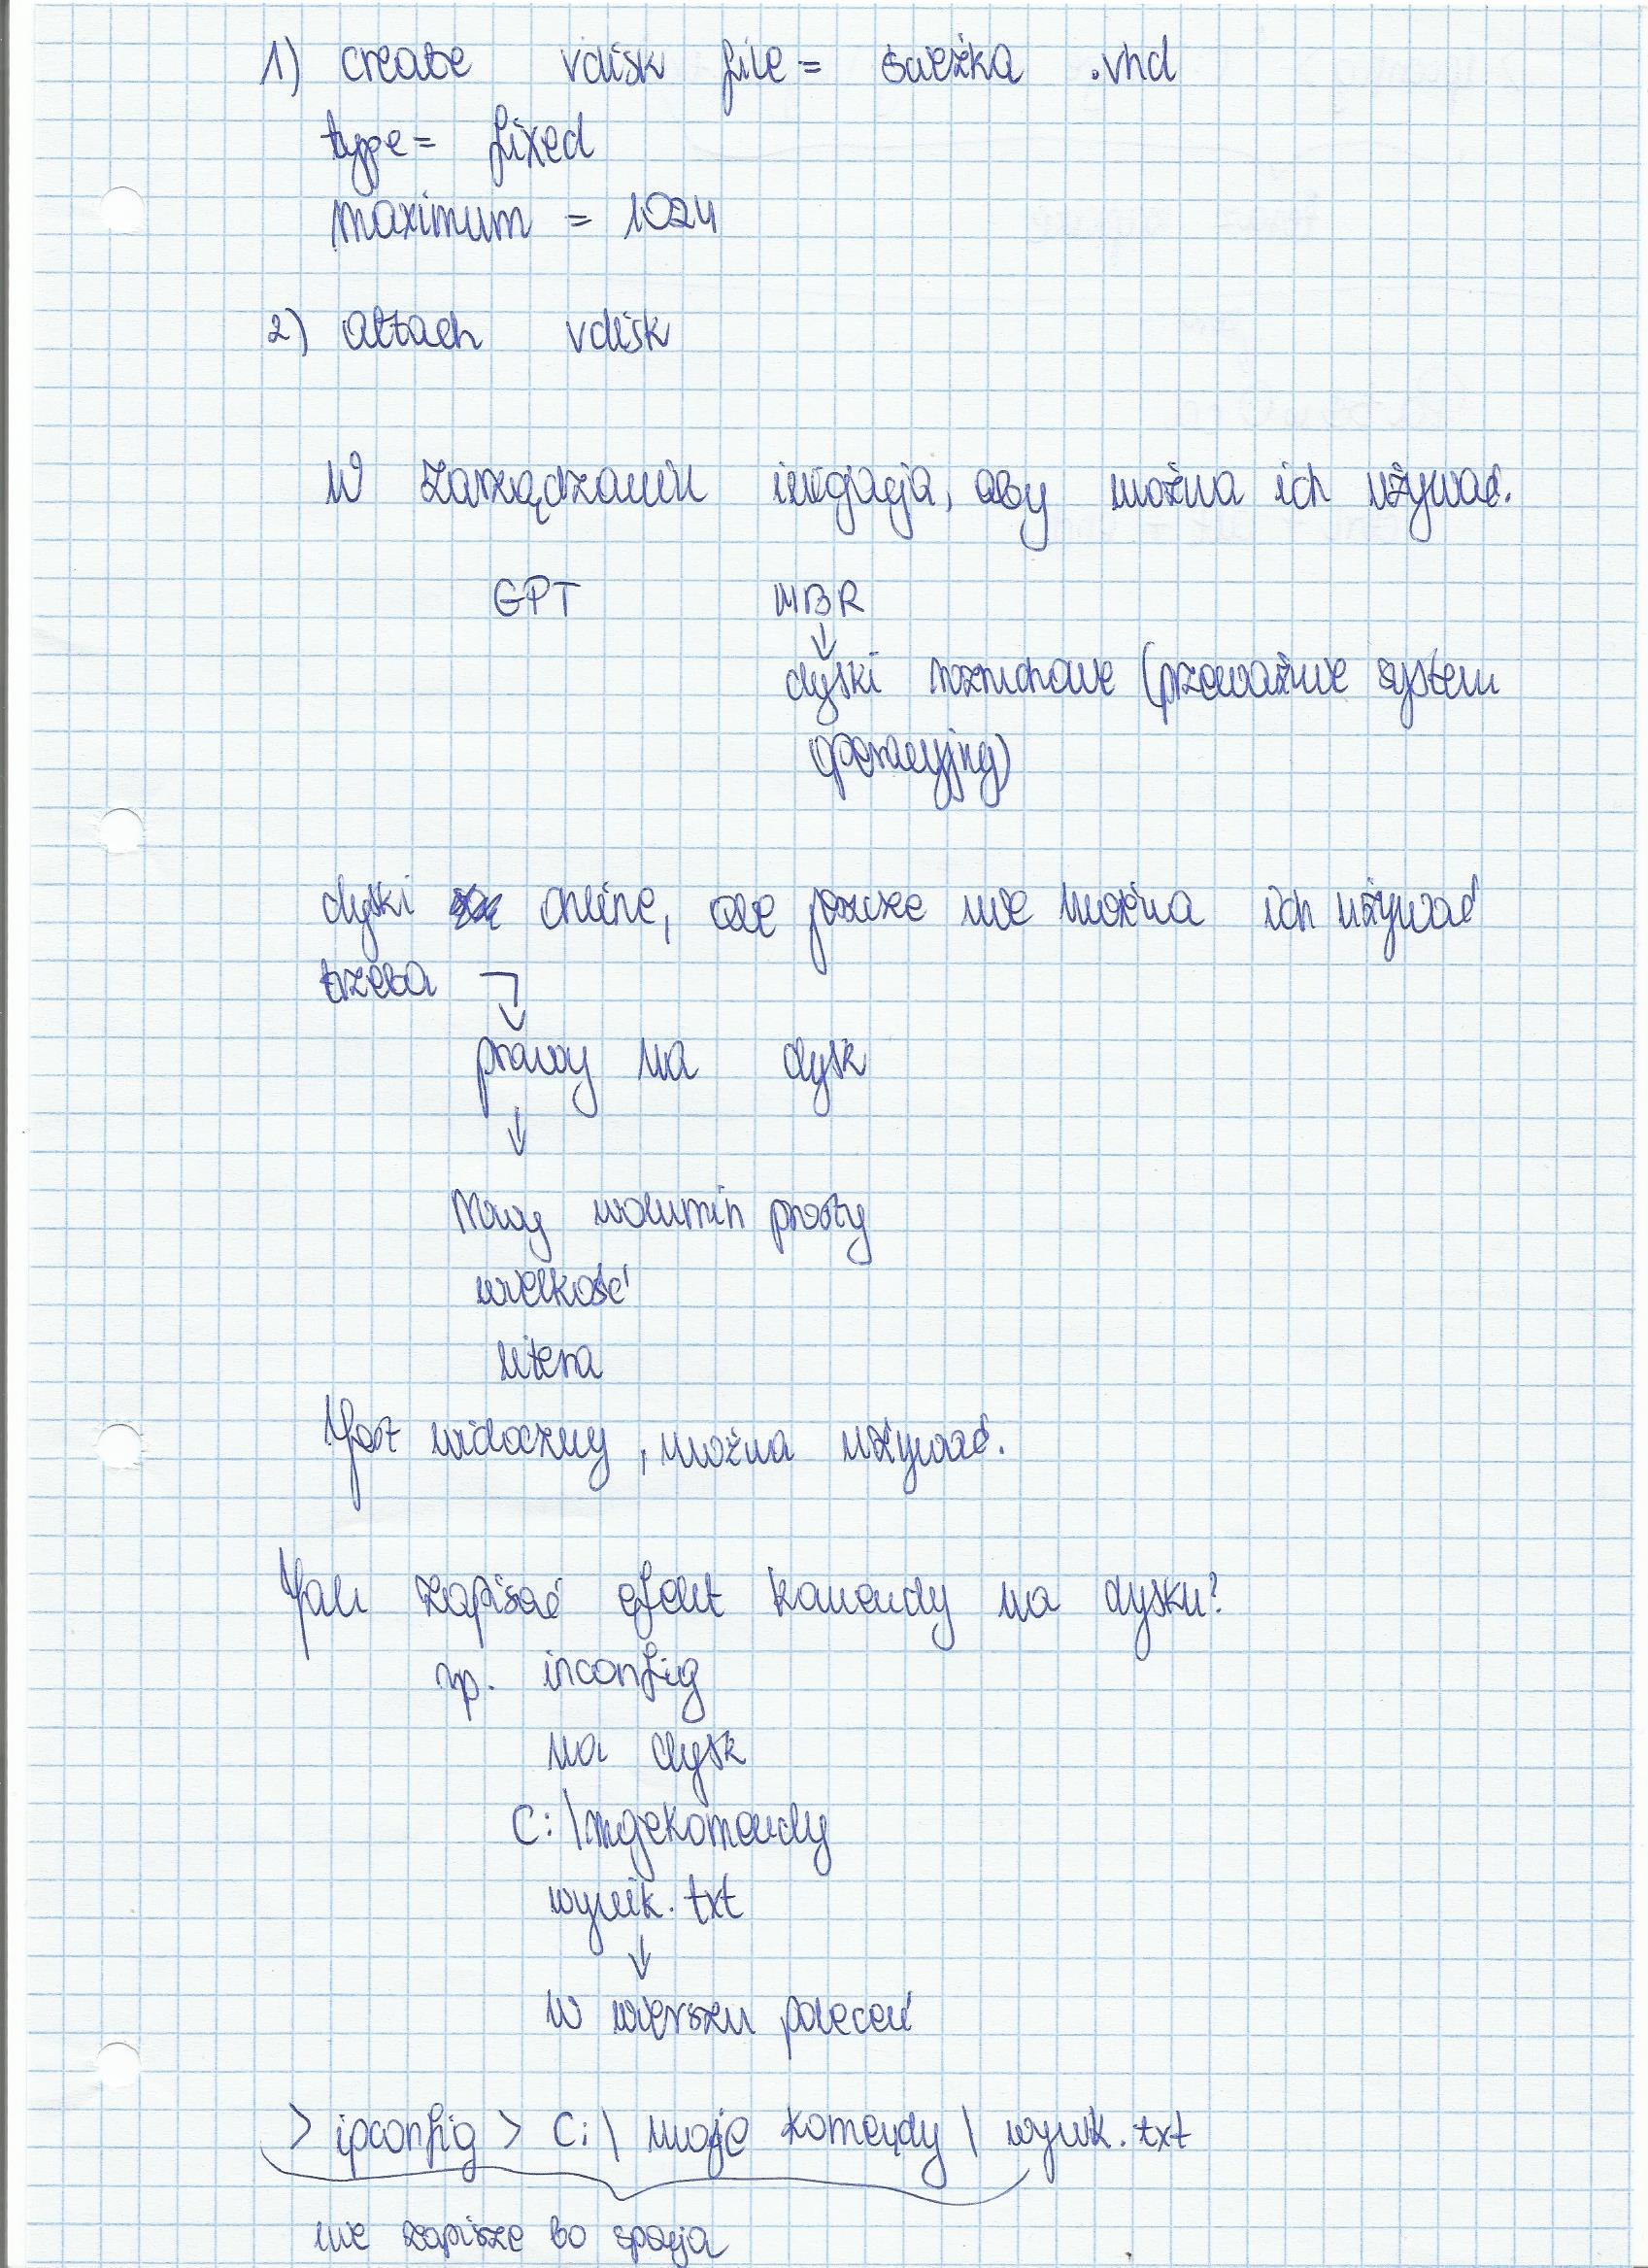 1) create vdisk file = ścieżka .vhd
type = fixed
maximum = 1024
2) attach vdisk
W zarządzaniu inicjacja, aby można ich używać.
GPT MBR
↓
dyski rozruchowe (przeważnie system
operacyjny)
dyski online, ale jeszcze nie można ich używać
trzeba
↓
prawy na dysk
↓
Nowy wolumin prosty
wielkość
litera
Jest widoczny, można używać.
Jak zapisać efekt komendy na dysku?
np. inconfig
na dysk
C:\mojekomendy
wynik.txt
↓
W wierszu poleceń
> ipconfig > C:\ moje komendy \ wynik.txt
nie zapisze bo spacja